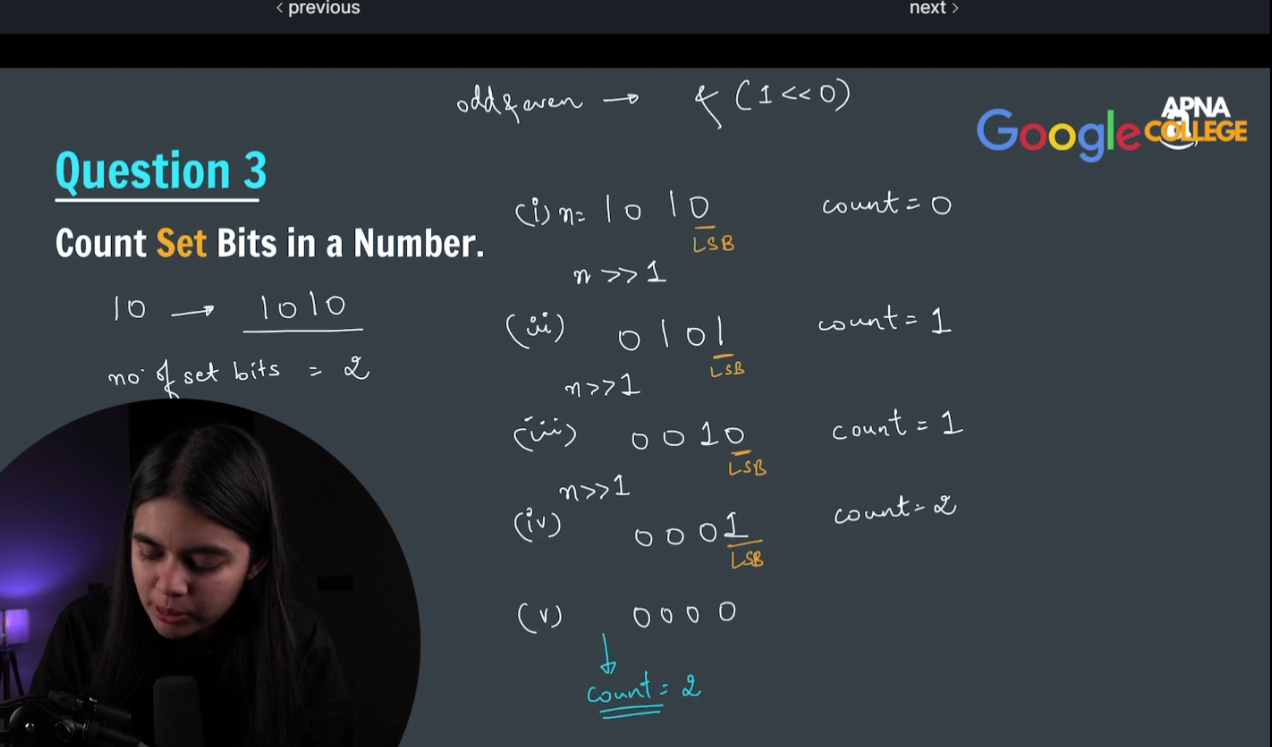 < previous
next >
odd & even → & (1<<0)
Google
APNA
COLLEGE
Question 3
Count Set Bits in a Number.
10 → 1010
no. of set bits = 2
(i) n= 1010 count = 0
LSB
n >> 1
(ii) 0101 count = 1
LSB
n>>1
(iii) 0010 count = 1
LSB
n>>1
(iv) 0001 count = 2
LSB
(v) 0000
↓
count = 2